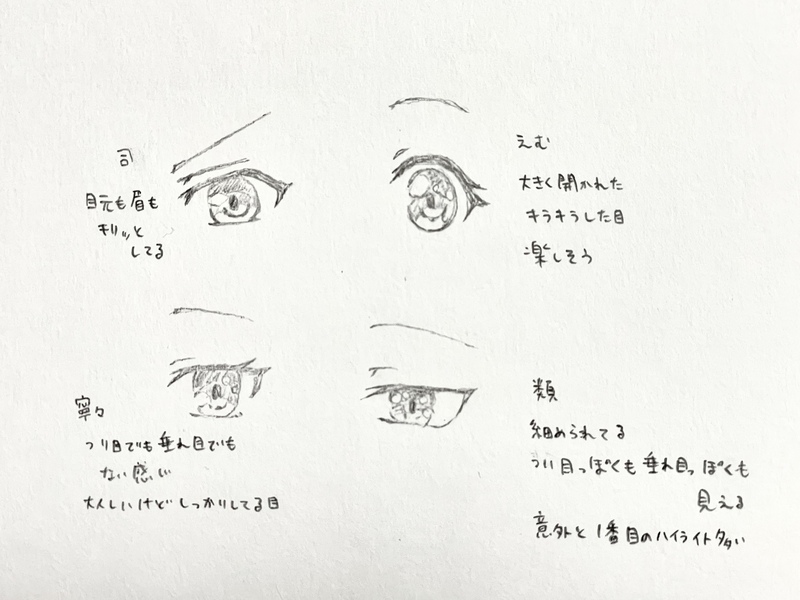 司
目元も眉も
キリッと
してる
えむ
大きく開かれた
キラキラした目
楽しそう
寧々
つり目でも垂れ目でも
ない感じ
大人しいけどしっかりしてる目
類
細められてる
つり目っぽくも垂れ目っぽくも
見える
意外と1番目のハイライト多い